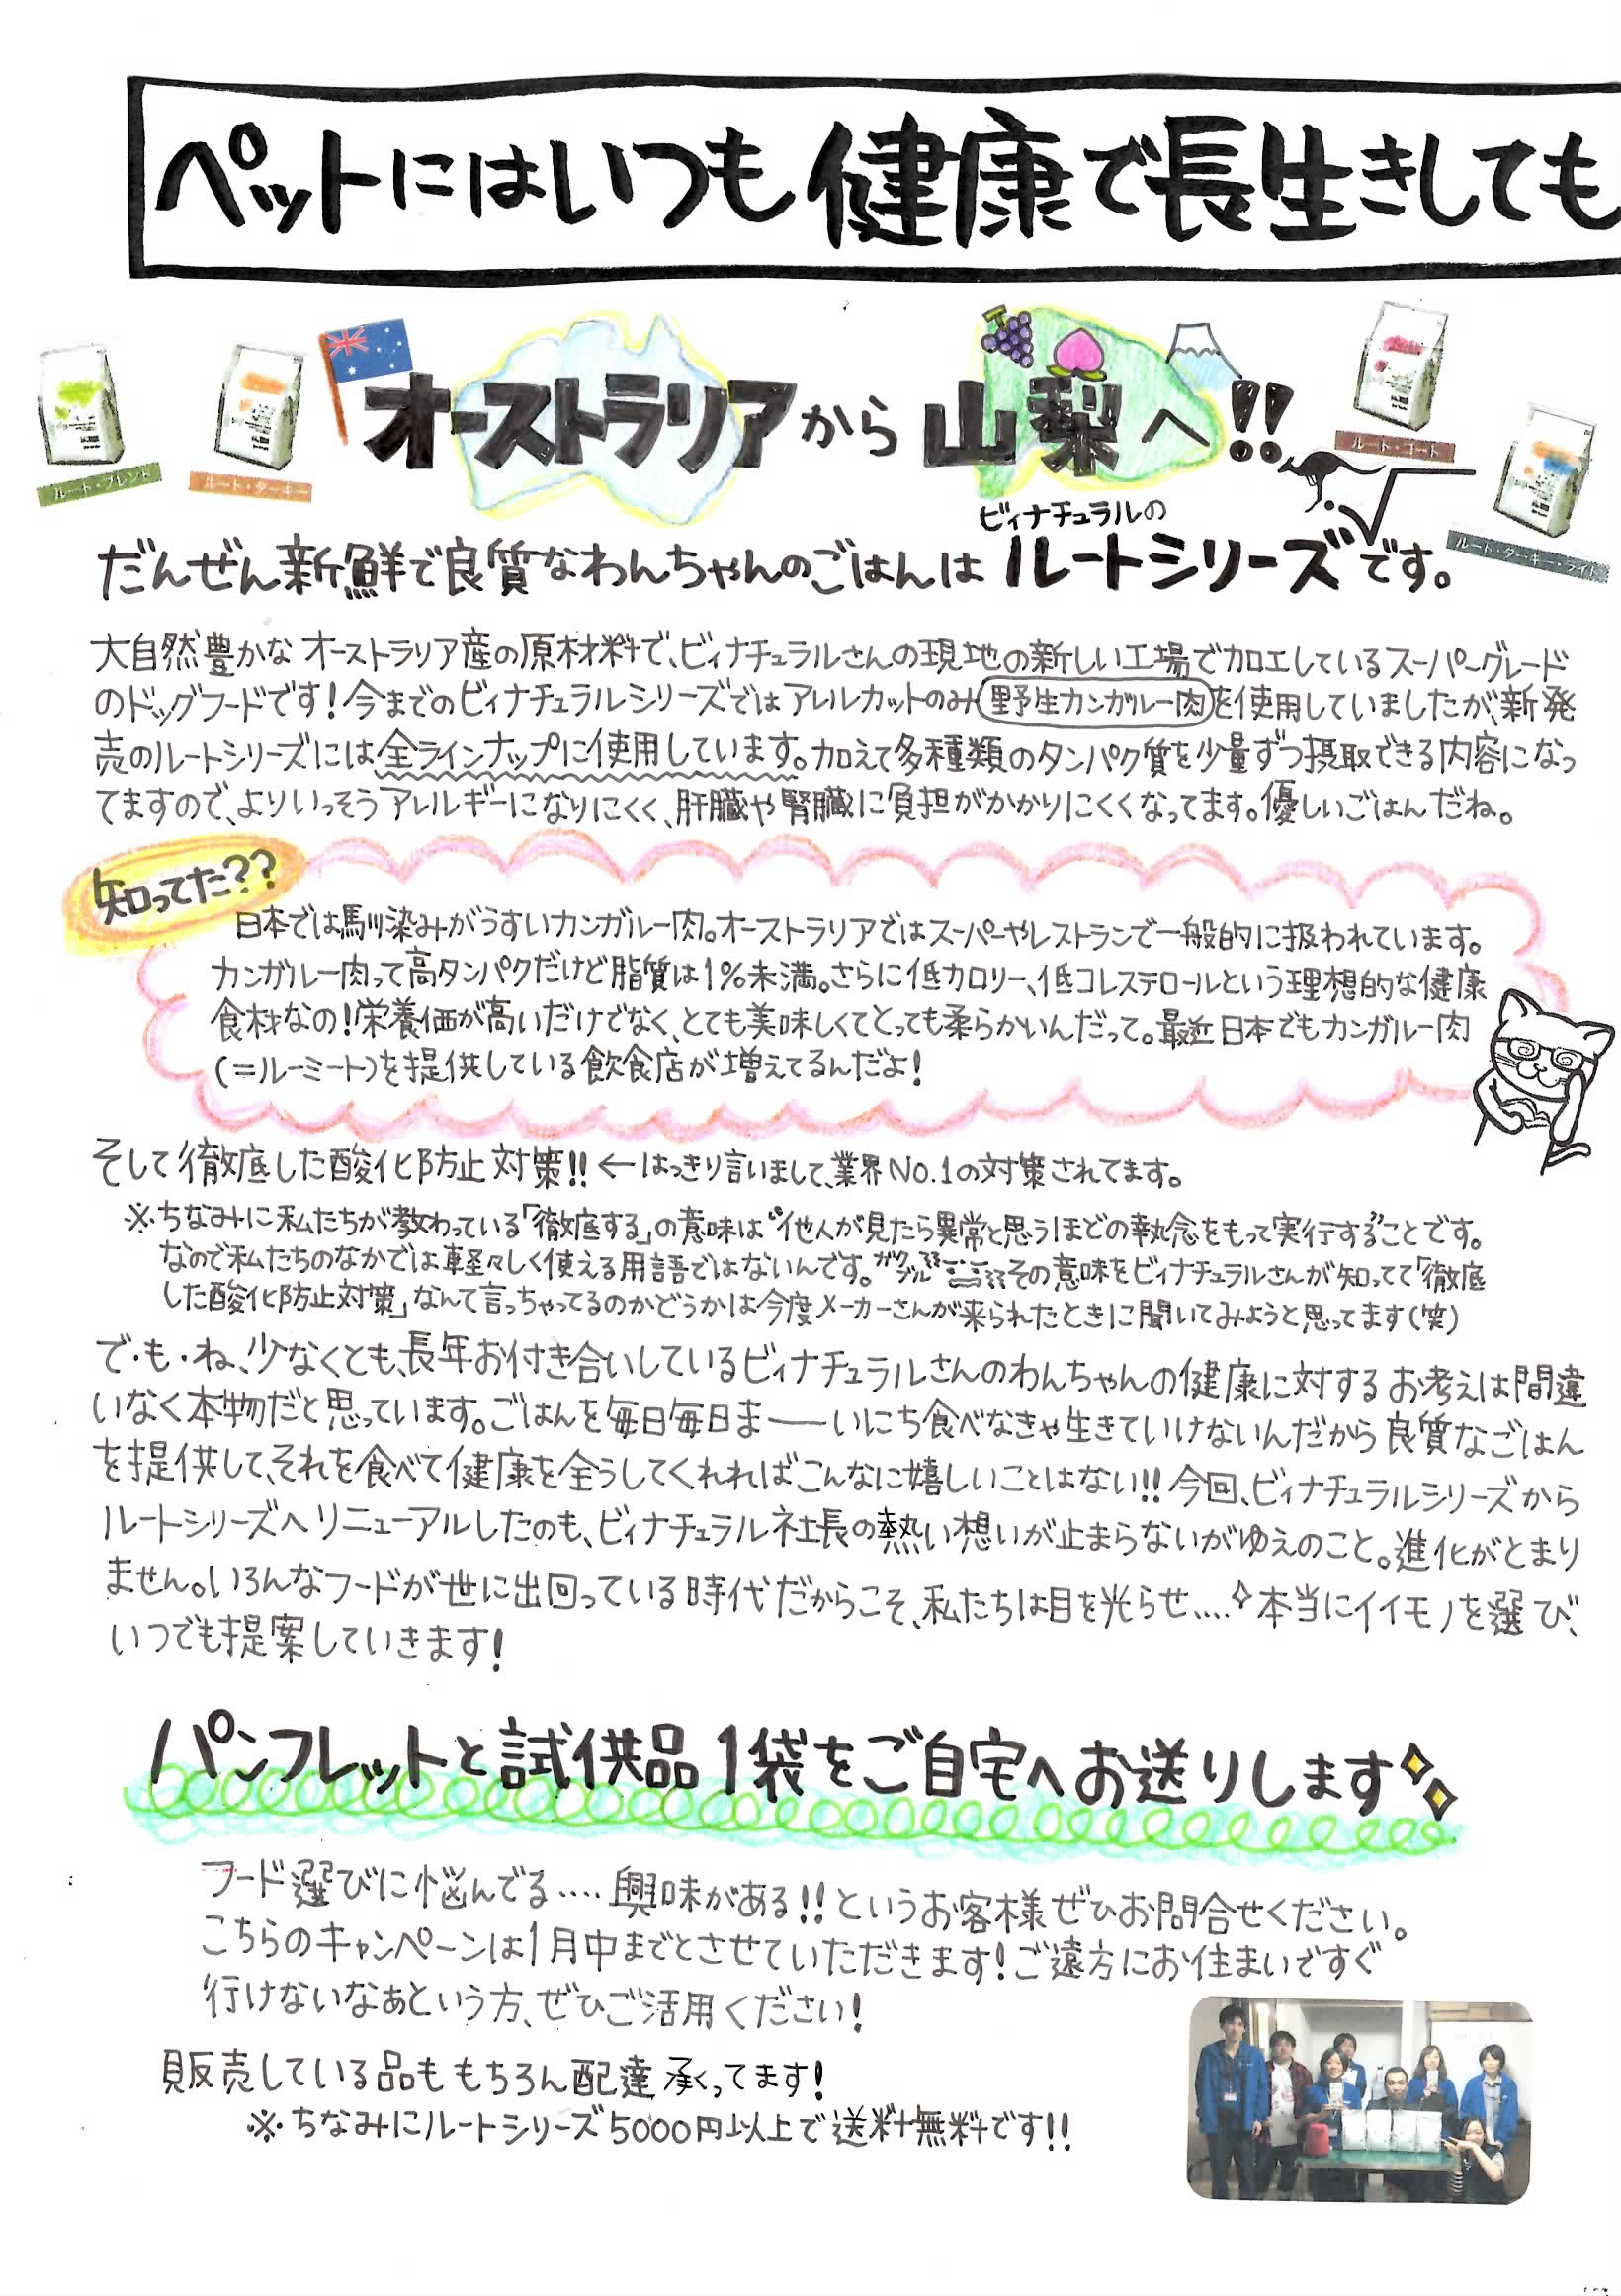 ペットにはいつも健康で長生きしても
オーストラリアから山梨へ!!
ルート・ブレンド
ルート・ターキー
ルート・ゴート
ルート・ターキー・ライト
ビィナチュラルの
だんぜん新鮮で良質なわんちゃんのごはんはルートシリーズです。
大自然豊かなオーストラリア産の原材料で、ビィナチュラルさんの現地の新しい工場で加工しているスーパーグレード
のドッグフードです!今までのビィナチュラルシリーズではアレルカットのみ野生カンガルー肉を使用していましたが、新発
売のルートシリーズには全ラインナップに使用しています。加えて多種類のタンパク質を少量ずつ摂取できる内容になっ
てますので、よりいっそうアレルギーになりにくく、肝臓や腎臓に負担がかかりにくくなってます。優しいごはんだね。
知ってた??
日本では馴染みがうすいカンガルー肉。オーストラリアではスーパーやレストランで一般的に扱われています。
カンガルー肉って高タンパクだけど脂質は1%未満。さらに低カロリー、低コレステロールという理想的な健康
食材なの!栄養価が高いだけでなく、とても美味しくてとっても柔らかいんだって。最近日本でもカンガルー肉
(=ルーミート)を提供している飲食店が増えてるんだよ!
そして徹底した酸化防止対策!!←はっきり言いまして、業界No.1の対策されてます。
※ちなみに私たちが教わっている「徹底する」の意味は"他人が見たら異常と思うほどの執念をもって実行する"ことです。
なので私たちのなかでは軽々しく使える用語ではないんです。ガクブルその意味をビィナチュラルさんが知ってて「徹底
した酸化防止対策」なんて言っちゃってるのかどうかは今度メーカーさんが来られたときに聞いてみようと思ってます(笑)
で・も・ね、少なくとも、長年お付き合いしているビィナチュラルさんのわんちゃんの健康に対するお考えは間違
いなく本物だと思っています。ごはんを毎日毎日ま――いにち食べなきゃ生きていけないんだから良質なごはん
を提供して、それを食べて健康を全うしてくれればこんなに嬉しいことはない!!今回、ビィナチュラルシリーズから
ルートシリーズへリニューアルしたのも、ビィナチュラル社長の熱い想いが止まらないがゆえのこと。進化がとまり
ません。いろんなフードが世に出回っている時代だからこそ、私たちは目を光らせ....✧本当にイイモノを選び、
いつでも提案していきます!
パンフレットと試供品1袋をご自宅へお送りします
フード選びに悩んでる....興味がある!!というお客様ぜひお問合せください。
こちらのキャンペーンは1月中までとさせていただきます!ご遠方にお住まいですぐ
行けないなぁという方、ぜひご活用ください!
販売している品ももちろん配達承ってます!
※ちなみにルートシリーズ5000円以上で送料無料です!!